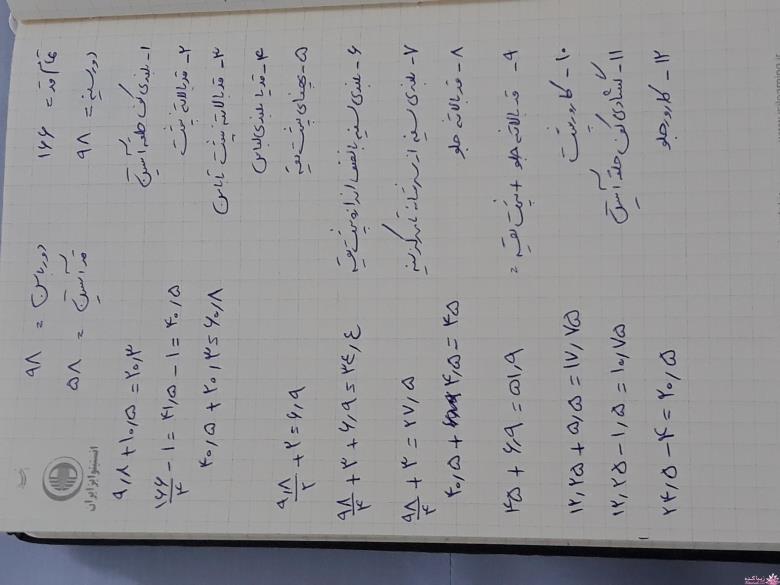 تمام قد = ۱۶۶ دور باسن = ۹۸
دور سینه = ۹۸ قد آستین = ۵۸
۱- بلندی کف حلقه آستین ۹٫۸ + ۱۰٫۵ = ۲۰٫۳
۲- قد بالاتنه پشت ۱۶۶/۴ - ۱ = ۴۱٫۵ - ۱ = ۴۰٫۵
۳- قد بالاتنه پشت تا باسن ۴۰٫۵ + ۲۰٫۳ = ۶۰٫۸
۴- قد یا بلندی لباس
۵- پهنای پشت یقه ۹٫۸/۲ + ۲ = ۶٫۹
۶- بلندی سینه با نصف اندازه پشت یقه ۹۸/۴ + ۳ + ۶٫۹ = ۳۴٫۴
۷- بلندی سینه از سرشانه تا سر برجستگی سینه ۹۸/۴ + ۳ = ۲۷٫۵
۸- قد بالاتنه جلو ۴۰٫۵ + ۴٫۵ = ۴۵
۹- قد بالاتنه جلو + پشت یقه = ۴۵ + ۶٫۹ = ۵۱٫۹
۱۰- کارور پشت ۱۲٫۲۵ + ۵٫۵ = ۱۷٫۷۵
۱۱- گشادی کف حلقه آستین ۱۲٫۲۵ - ۱٫۵ = ۱۰٫۷۵
۱۲- کارور جلو ۲۴٫۵ - ۴ = ۲۰٫۵